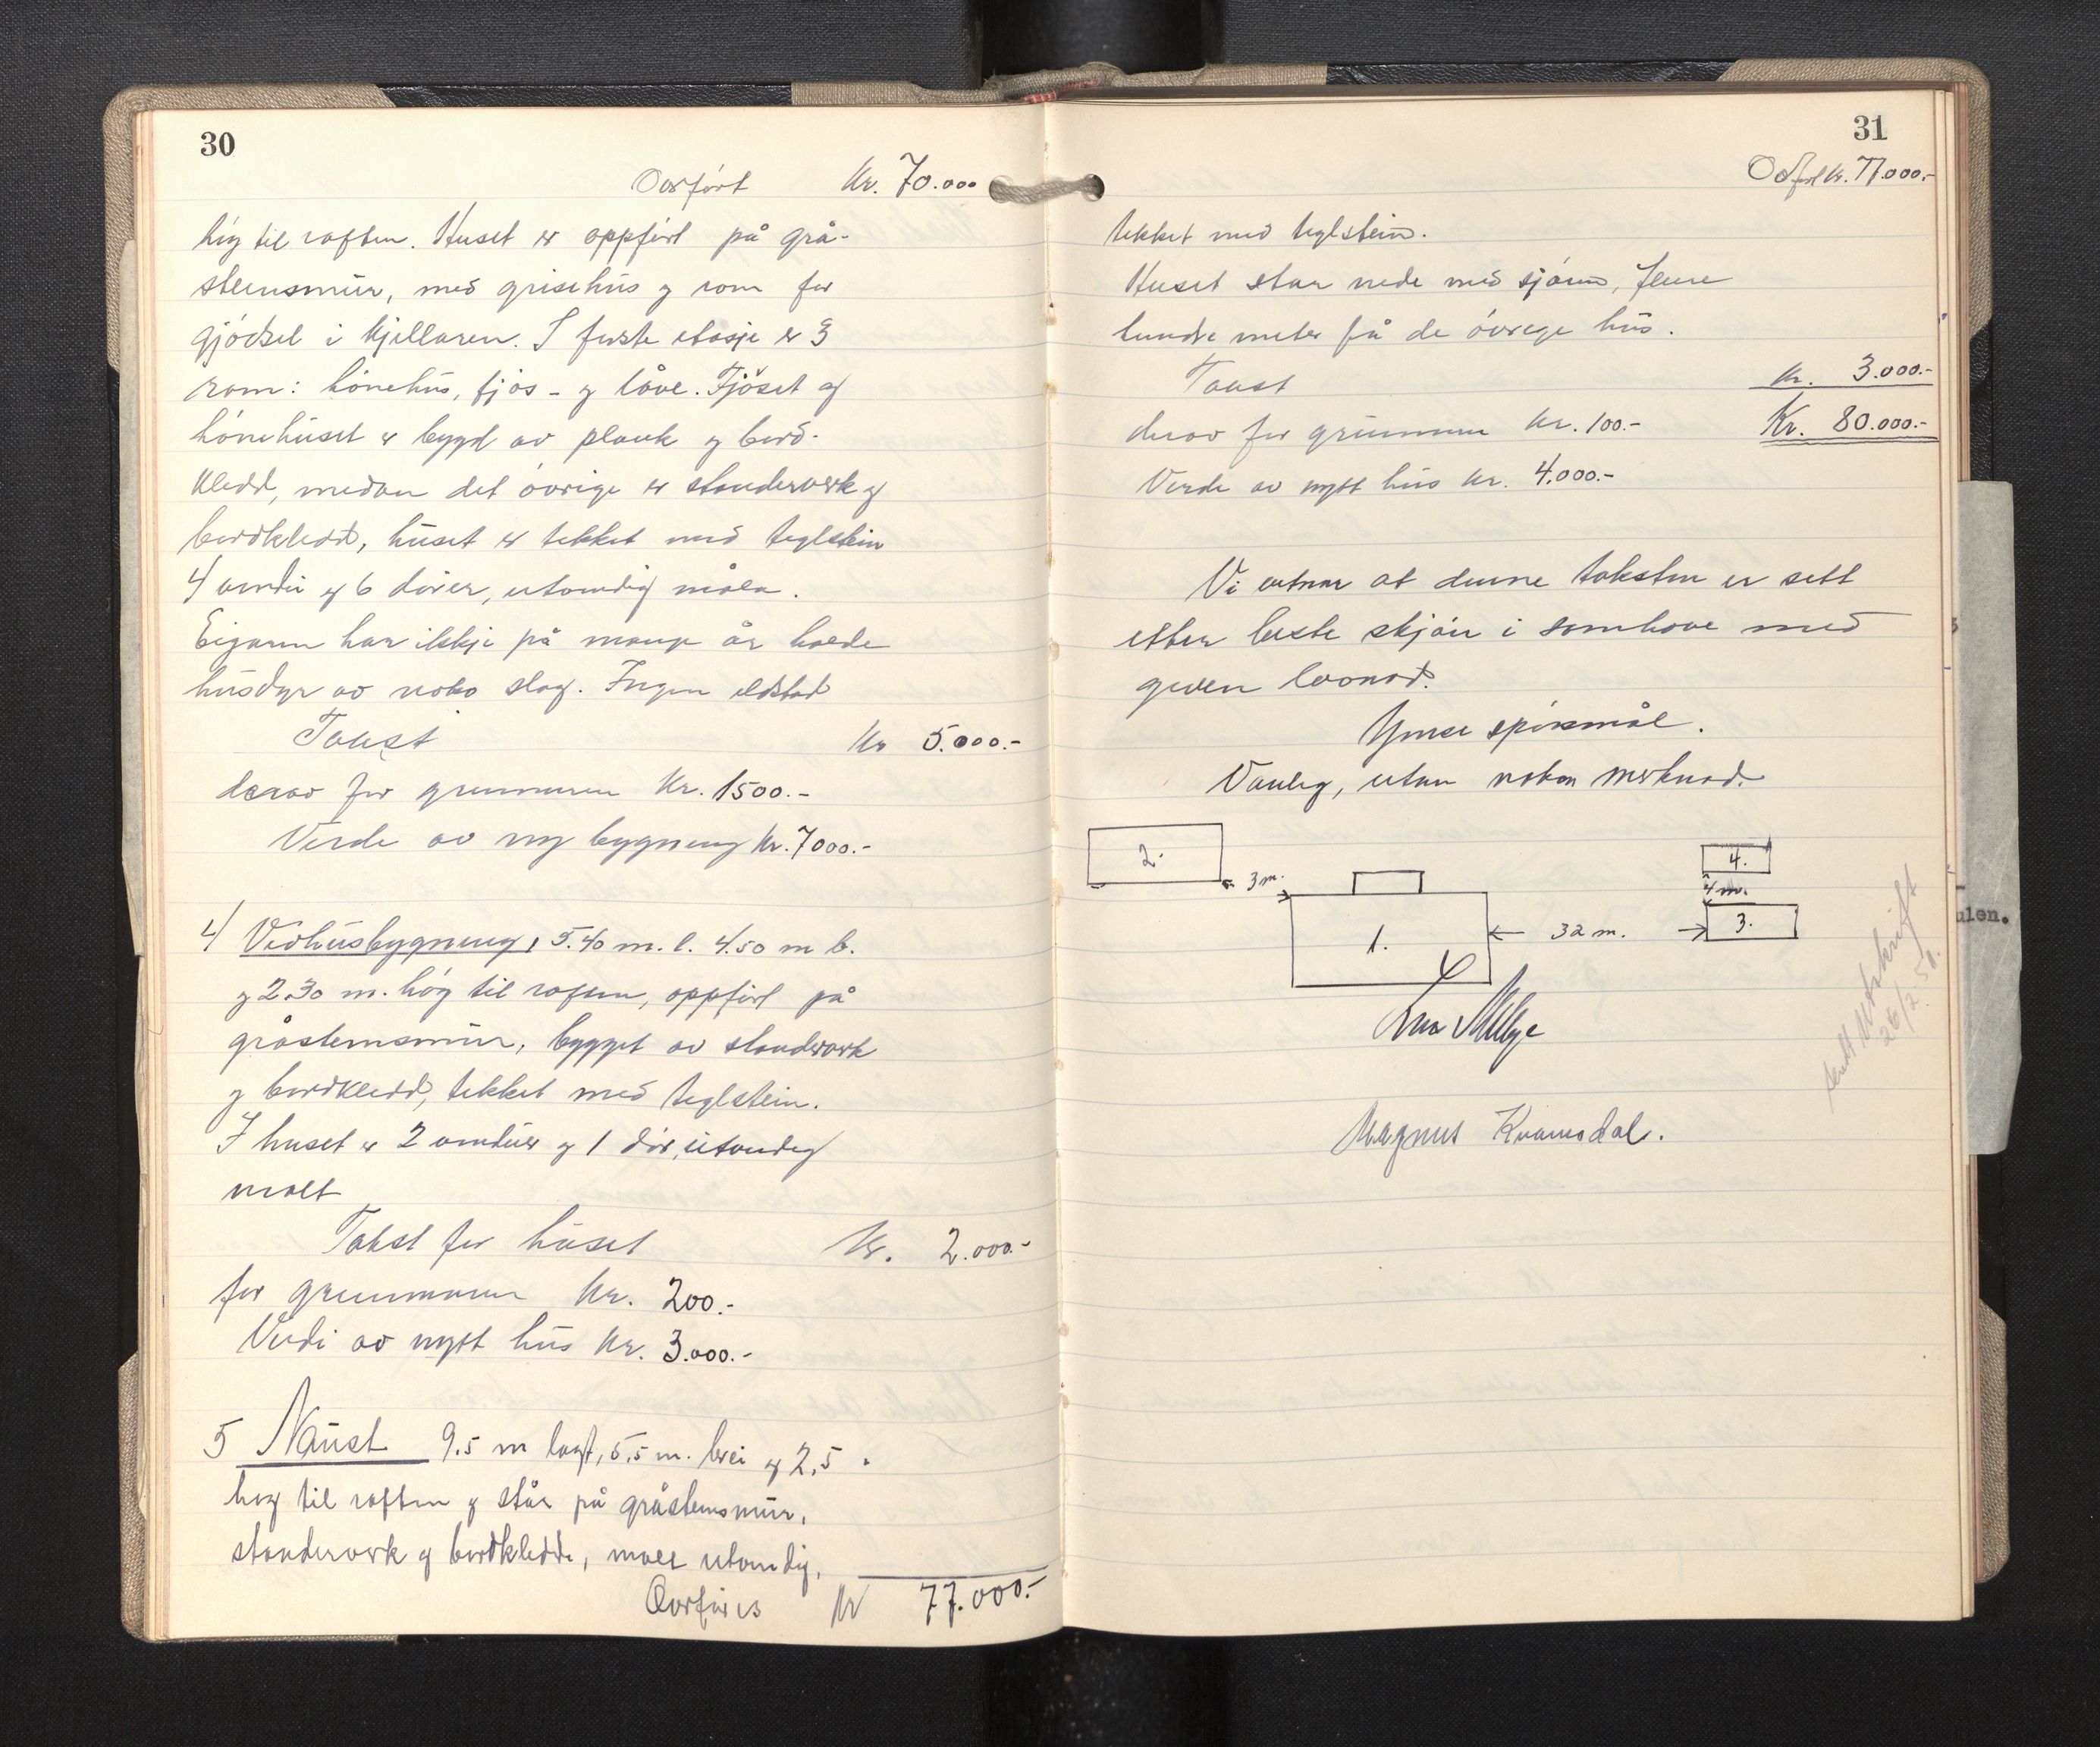 30
Overført Kr. 70.000
høg til raften. Huset er oppført på grå-
steinsmur, med grisehus og rom for
gjødsel i kjellaren. I fyrste etasje er 3
rom: hønehus, fjøs - og låve. Fjøset og
hønehuset er bygd av plank og bord-
kledd, medan det øvrige er standerverk og
bordkledd, huset er tekket med teglstein
4 vindu og 6 dører, utvendig måla.
Eigaren har ikkje på mange år havde
husdyr av noko slag. Ingen eldstad
Takst Kr 5.000.-
derav for grunnmuren Kr. 1500.-
Verde av ny bygning Kr. 7000.-
4/ Vedhusbygning, 5.40 m. l. 4.50 m b.
og 2.30 m. høg til raften, oppført på
gråsteinsmur, bygget av standverk
og bordkledd, tekket med teglstein.
I huset er 2 vinduer og 1 dør, utvendig
malt
Takst for huset Kr. 2.000.-
for grunnmuren Kr. 200.-
Verdi av nytt hus Kr. 3.000.-
5 Naust 9.5 m langt, 5,5 m. brei og 2,5
høg til raften og står på gråsteinsmur,
standerverk og bordkledde, utvendig,
Overføres Kr 77.000.-
31
Kr. 77.000.-
tekket med teglstein.
Huset står nede med sjøen, fleire
hundre meter frå de øvrige hus.
Takst Kr. 3.000.-
derav for grunnmuren Kr. 100.- Kr. 80.000.-
Verde av nytt hus Kr. 4.000.-
Vi vitnar at denne taksten er sett
etter beste skjøn i samhøve med
gjeven lovnad.
Ymse spørsmål.
Vanleg, utan nokon merknad.
2.
3 m.
1.
32 m.
4.
4 m.
3.
Magnus Kvamsdal.
sendt utskrift
26/2.51.
ulen.